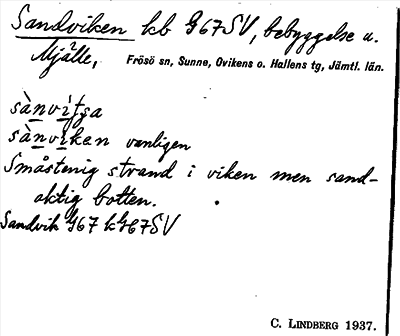 Sandviken kb G67SV, bebyggelse u.
Mjälle, Frösö sn, Sunne, Ovikens o. Hallens tg, Jämtl. län.
sànvìtsa
sànviken vanligen
Småstenig strand i viken men sand-
aktig botten.
Sandvik G67 kG67SV
C. LINDBERG 1937.